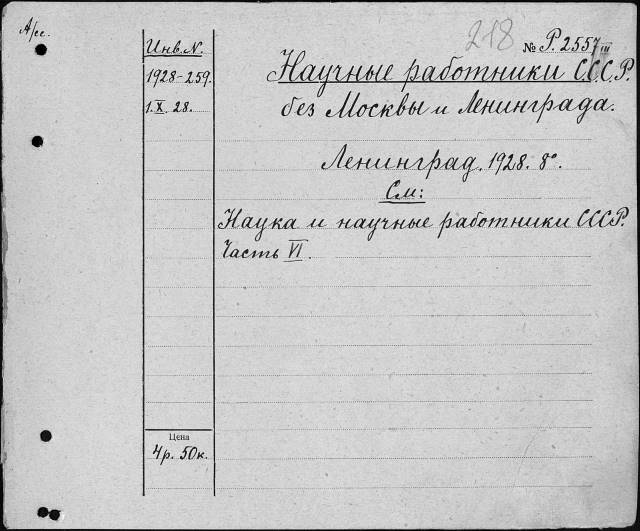 А/сс.
218
№ Р. 2557 III
Инв. N.
1928-259.
1. X. 28.
Научные работники СССР.
без Москвы и Ленинграда.
Ленинград. 1928. 8º.
См:
Наука и научные работники СССР.
Часть VI.
Цена
4 р. 50 к.